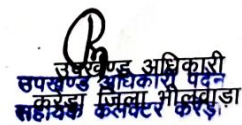 उपखण्ड अधिकारी
उपखण्ड अधिकारी पदेन
करेड़ा जिला भीलवाड़ा
सहायक कलक्टर करेड़ा